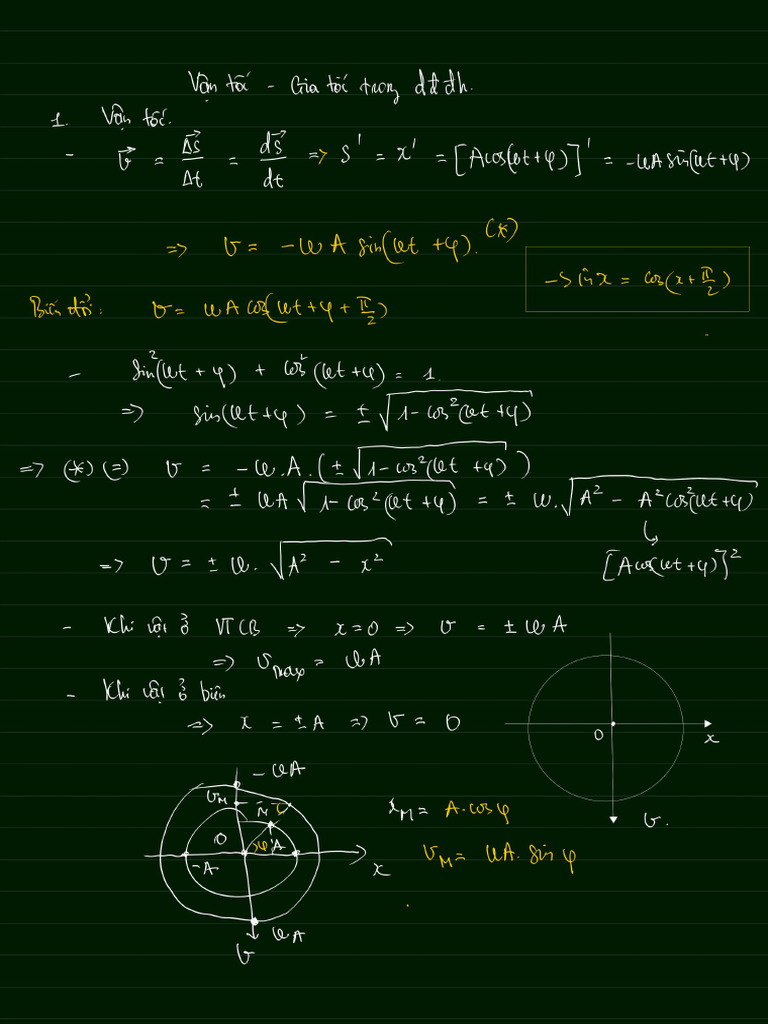 Vận tốc - Gia tốc trong dđđh.
1. Vận tốc.
- v⃗ = Δs⃗/Δt = ds⃗/dt => s' = x' = [Acos(ωt+φ)]' = -ωA sin(ωt+φ)
=> v = -ωA sin(ωt+φ). (*)
-sin x = cos(x+π/2)
Biến đổi: v = ωA cos(ωt+φ+π/2)
- sin²(ωt+φ) + cos²(ωt+φ) = 1.
=> sin(ωt+φ) = ±√(1-cos²(ωt+φ))
=> (*) (=) v = -ω.A.(±√(1-cos²(ωt+φ)))
= ± ωA√(1-cos²(ωt+φ)) = ± ω.√(A² - A²cos²(ωt+φ))
[Acos(ωt+φ)]²
=> v = ± ω.√(A² - x²)
- Khi vật ở VTCB => x=0 => v = ±ωA
=> vmax = ωA
- Khi vật ở biên
=> x = ±A => v = 0
O
x
v.
-ωA
vM
M
O
φ
A
-A
x
ωA
v
xM = A.cosφ
vM = ωA.sinφ